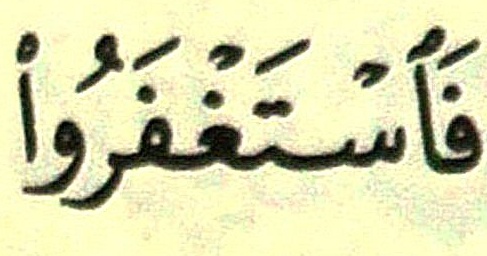 فَٱسْتَغْفَرُوا۟